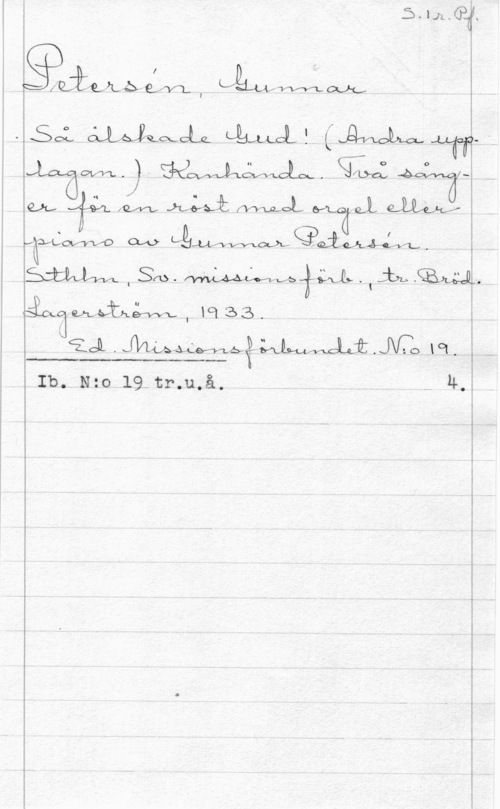 S. 1 r. Pf.
Petersén, Gunnar
Så älskade Gud! (Andra upp-
lagan.) Kanhända. Två sång-
er för en röst med orgel eller
piano av Gunnar Petersén.
Sthlm, Sv. missionsförb., tr. Bröd.
Lagerström, 1933.
Ed. Missionsförbundet. N:o 19.
Ib. N:o 19 tr.u.å. 4.